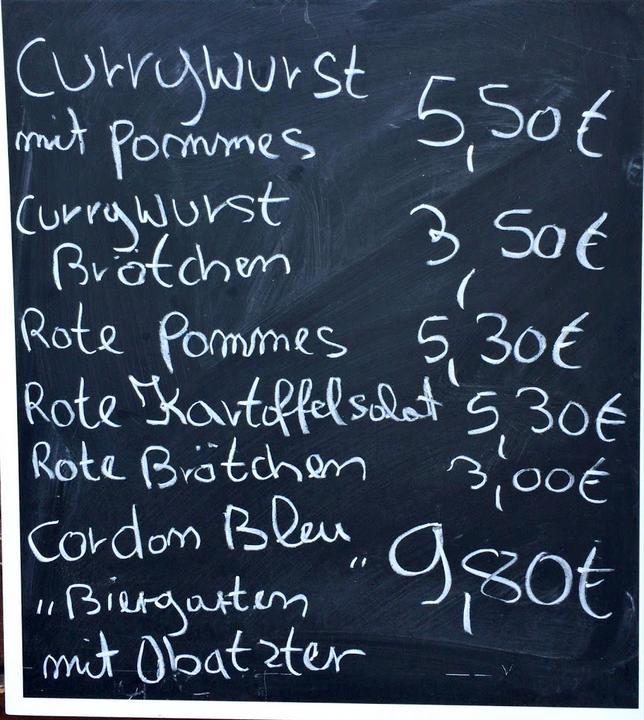 Currywurst
mit Pommes 5,50€
Currywurst
Brötchen 3,50€
Rote Pommes 5,30€
Rote Kartoffelsalat 5,30€
Rote Brötchen 3,00€
Cordon Bleu
„Biergarten“ 9,80€
mit Obatzter